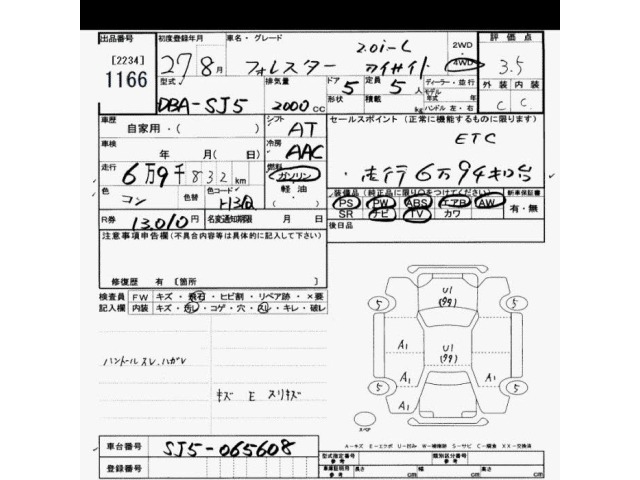 出品番号 初度登録年月 車名・グレード 2.0i-L 2WD 評価点
[2234] 27年 8月 フォレスター アイサイト 4WD 3.5
1166 型式 排気量 ドア 5 定員 5人 ディーラー・並行 外装 内装
DBA-SJ5 2000cc 形状 積載 モデル年式 年 C C
ハンドル 左・右
車歴 自家用・( ) シフト AT セールスポイント (正常に機能するものに限ります)
車検 年 月(日) 冷房 AAC ETC
走行 6万9千832km 燃料 ガソリン ・走行6万9千キロ台
軽油・( )
色 コン 色替 色コード H3Q 装備品(純正品に限り○をつけてください) 新車保証書
PS PW ABS エアB AW 有・無
R券 13010円 名変通知期限 月 日 SR ナビ TV カワ
注意事項申告欄(不具合内容等は具体的に記入して下さい) 後日品
修復歴 有 [箇所 ]
検査員 FW キズ・飛石・ヒビ割・リペア跡・×要
記入欄 内装 キズ・汚レ・コゲ・穴・スレ・キレ・破レ
ハンドルスレ、ハガレ
キズ E スリキズ
U1
(99)
5 5
A1 U1 A1
(99)
5 A1 A1 5
A1
スペア
A-キズ E-エクボ U-凹み W-補修跡 S-サビ C-腐食 XX-交換済
車台番号 SJ5-065608 型式指定番号 参考 類別区分番号 参考
登録番号 車庫証明用 参考 長さ cm 幅 cm 高さ cm